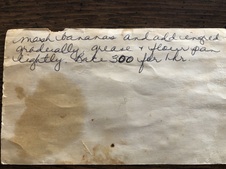 mash bananas and add ingred
gradually grease + flour pan
lightly Bake 300 for 1 hr